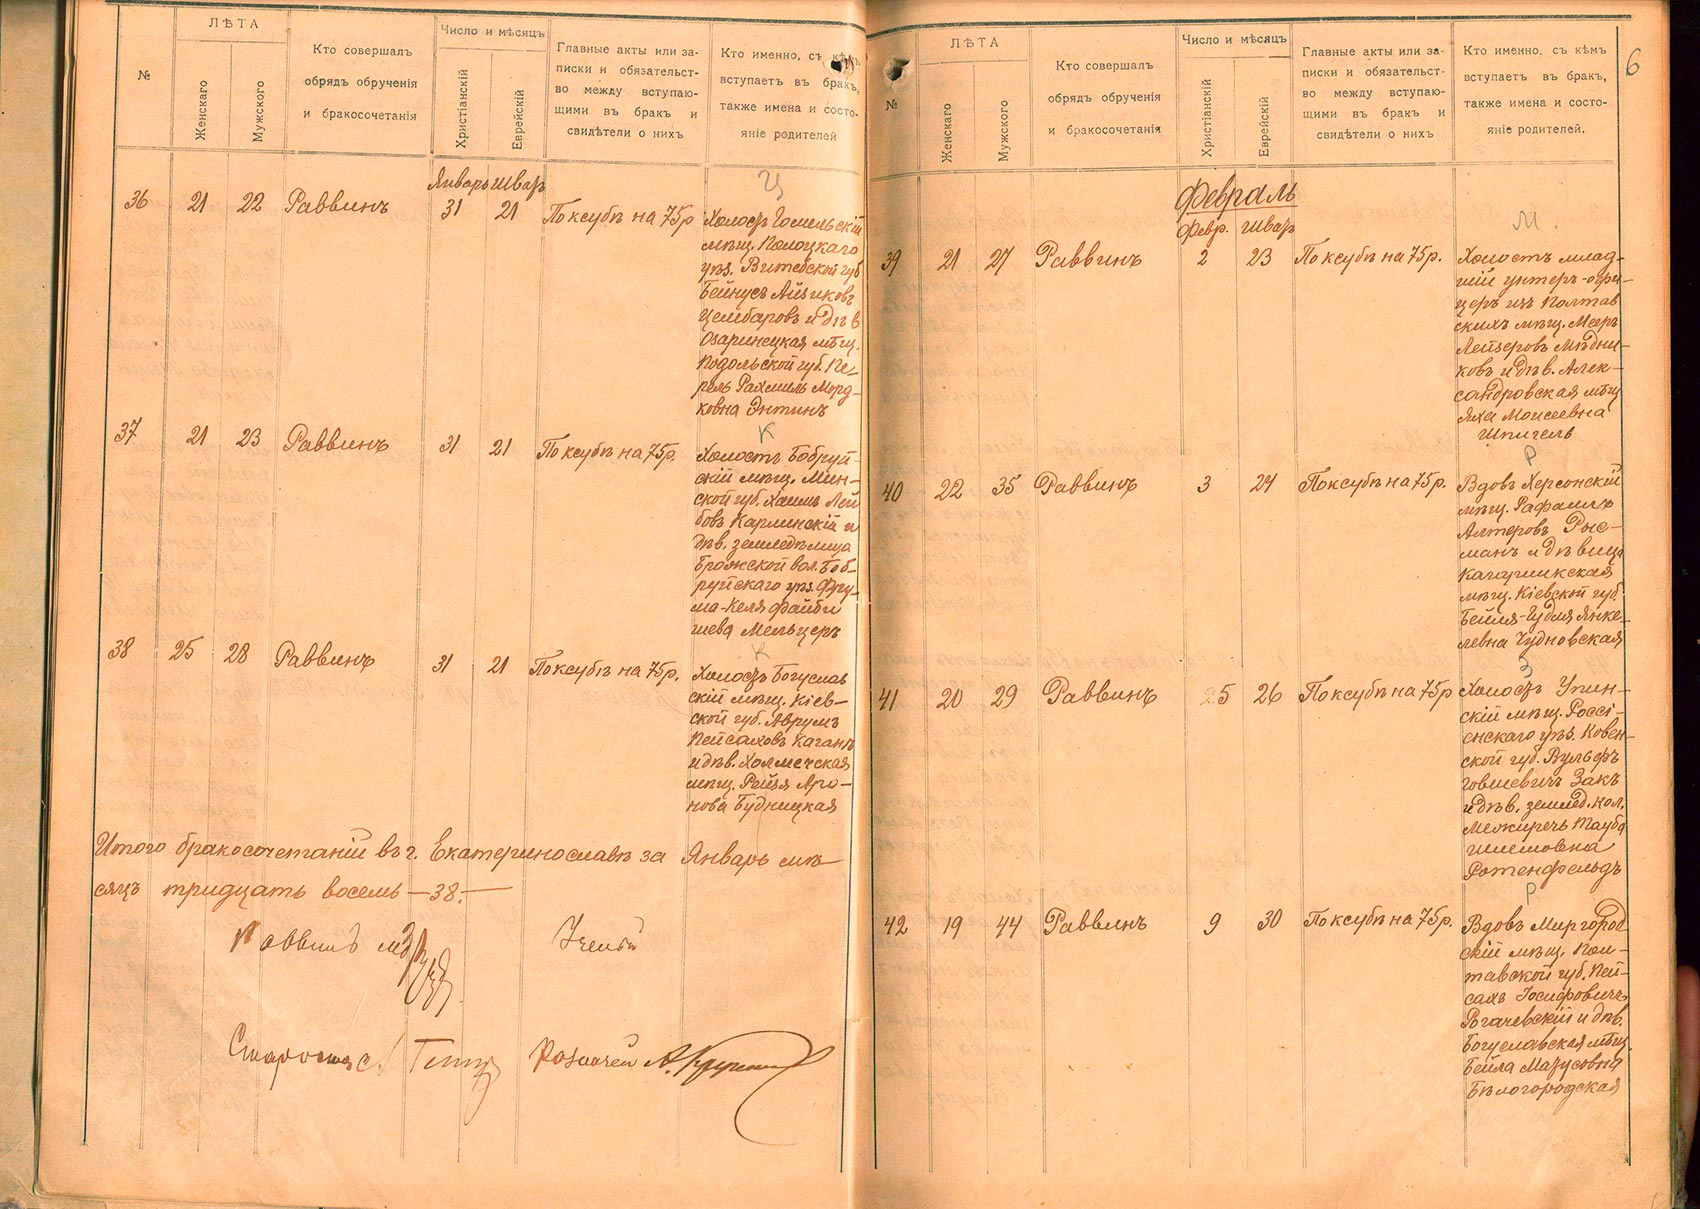 №
ЛѢТА
Женскаго
Мужского
Кто совершалъ
обрядъ обрученія
и бракосочетанія
Число и мѣсяцъ
Христіанскій
Еврейскій
Главные акты или за-
писки и обязательст-
во между вступаю-
щими въ бракъ и
свидѣтели о нихъ
Кто именно, съ кѣмъ
вступаетъ въ бракъ,
также имена и состо-
яніе родителей
Январь Шват
Ц
36 21 22 Раввинъ 31 21 По ксубѣ на 75р
Холостъ Гомельскій
мѣщ. Полоцкаго
уѣз. Витебской губ
Бейнусъ Айзиковъ
Цембаровъ и дѣв
Озаринецкая мѣщ.
Подольской губ. Пе-
рель Рахмиль Морд-
ковна Энтинъ
К
37 21 23 Раввинъ 31 21 По ксубѣ на 75р.
Холостъ Бобруй-
скій мѣщ. Мин-
ской губ. Хаимъ Лей
бовъ Карлинскій и
дѣв. земледѣлица
Брожской вол. Боб-
руйскаго уѣз. Фру-
ма-Келя Файби
шева Мельцеръ
К
38 25 28 Раввинъ 31 21 По ксубѣ на 75р.
Холостъ Богуслав
скій мѣщ. Кіев-
ской губ. Аврумъ
Пейсаховъ Каганъ
и дѣв. Холмечская
мѣщ. Рейзя Аро-
нова Будницкая
Итого бракосочетаній въ г. Екатеринославѣ за Январь мѣ-
сяцъ тридцать восемь —38.—
Раввинъ
Ученый
Староста
Казначей
№
ЛѢТА
Женскаго
Мужского
Кто совершалъ
обрядъ обрученія
и бракосочетанія
Число и мѣсяцъ
Христіанскій
Еврейскій
Главные акты или за-
писки и обязательст-
во между вступаю-
щими въ бракъ и
свидѣтели о нихъ
Кто именно, съ кѣмъ
вступаетъ въ бракъ,
также имена и состо-
яніе родителей.
6
Февраль
Февр. Шват
М.
39 21 27 Раввинъ 2 23 По ксубѣ на 75р.
Холостъ млад-
шій унтеръ-офи-
церъ изъ Полтав
скихъ мѣщ. Мееръ
Лейзеровъ Мѣдни-
ковъ и дѣв. Алек-
сандровская мѣщ
Яха Моисеевна
Шпигель
Р
40 22 35 Раввинъ 3 24 По ксубѣ на 75р.
Вдовъ Херсонскій
мѣщ. Рафаилъ
Алтеровъ Рыс-
манъ и дѣвица
мѣщ. Кіевской губ.
Бейля-Гудля Янке-
левна Чудновская
З
41 20 29 Раввинъ 5 26 По ксубѣ на 75р
Холостъ Упин-
скій мѣщ. Россі-
енскаго уѣз. Ковен-
ской губ. Вульфъ
Говшевичъ Закъ
и дѣв. землед. кол.
Межиречь Тауба
Шлемовна
Ротенфельдъ
Р
42 19 44 Раввинъ 9 30 По ксубѣ на 75р.
Вдовъ Миргород
скій мѣщ. Пол-
тавской губ. Пей-
сахъ Іосифовичъ
Рогачевскій и дѣв.
Богуславская мѣщ.
Бейла Марусовна
Бѣлогородская